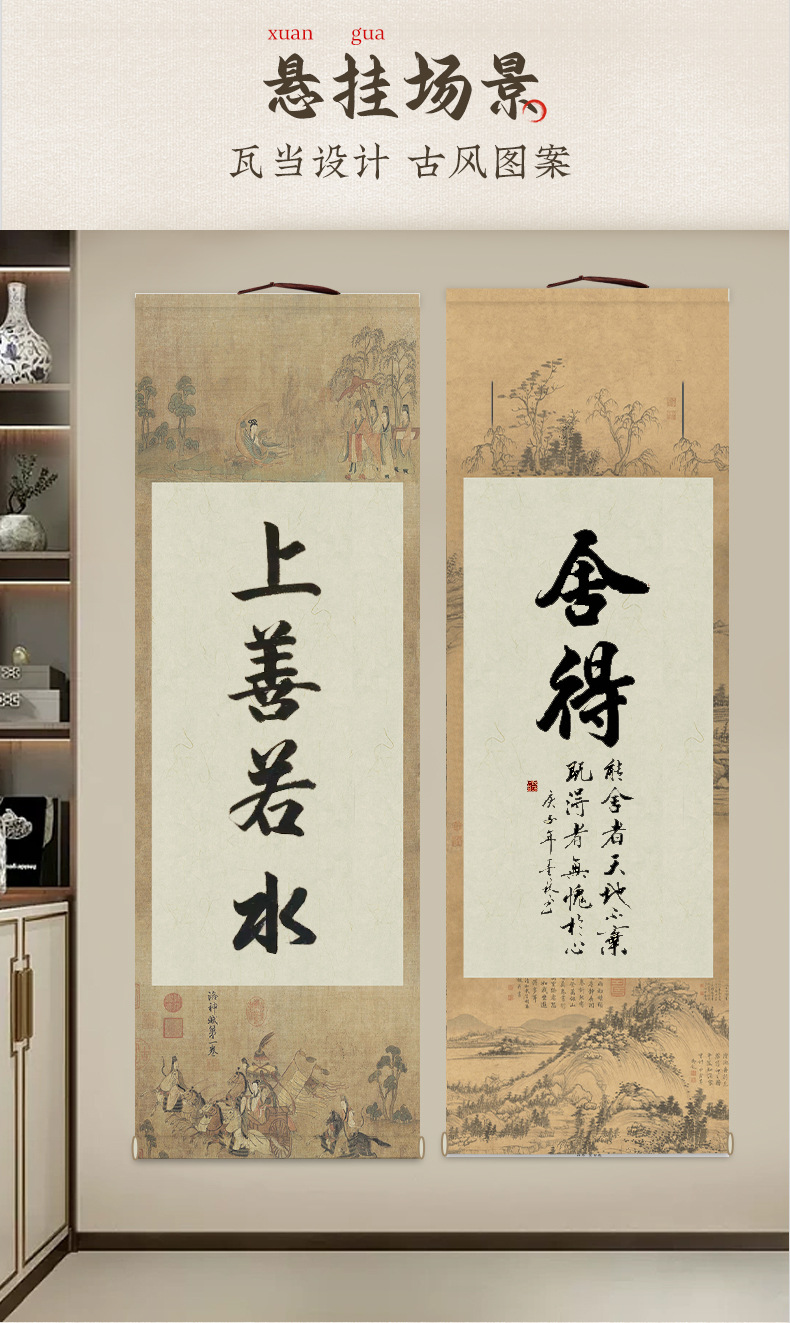 xuan gua
悬挂场景
瓦当设计 古风图案
上善若水
舍得
能舍者天地不棄
既淂者無愧於心
庚子年
洛神賦第一卷